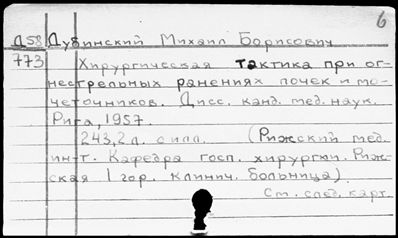 6
Д58 Дубинский Михаил Борисович
773 Хирургическая тактика при ог-
нестрельных ранениях почек и мо-
четочников. Дисс. канд. мед. наук.
Рига, 1957.
243,2 л. с илл. (Рижский мед.
ин-т. Кафедра госп. хирургии. Риж-
ская 1 гор. клинич. больница)
См. след. карт.